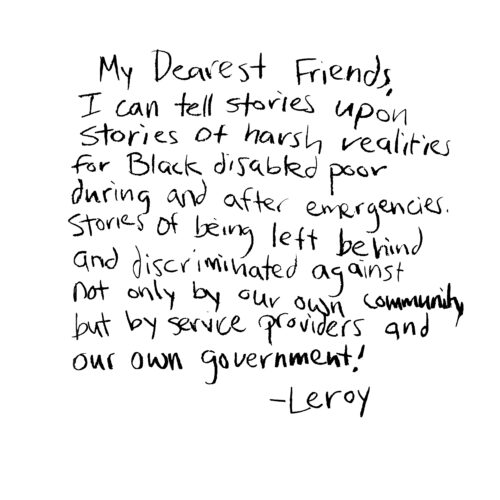 My Dearest Friends,
I can tell stories upon
stories of harsh realities
for Black disabled poor
during and after emergencies.
Stories of being left behind
and discriminated against
not only by our own community
but by service providers and
our own government!
-Leroy